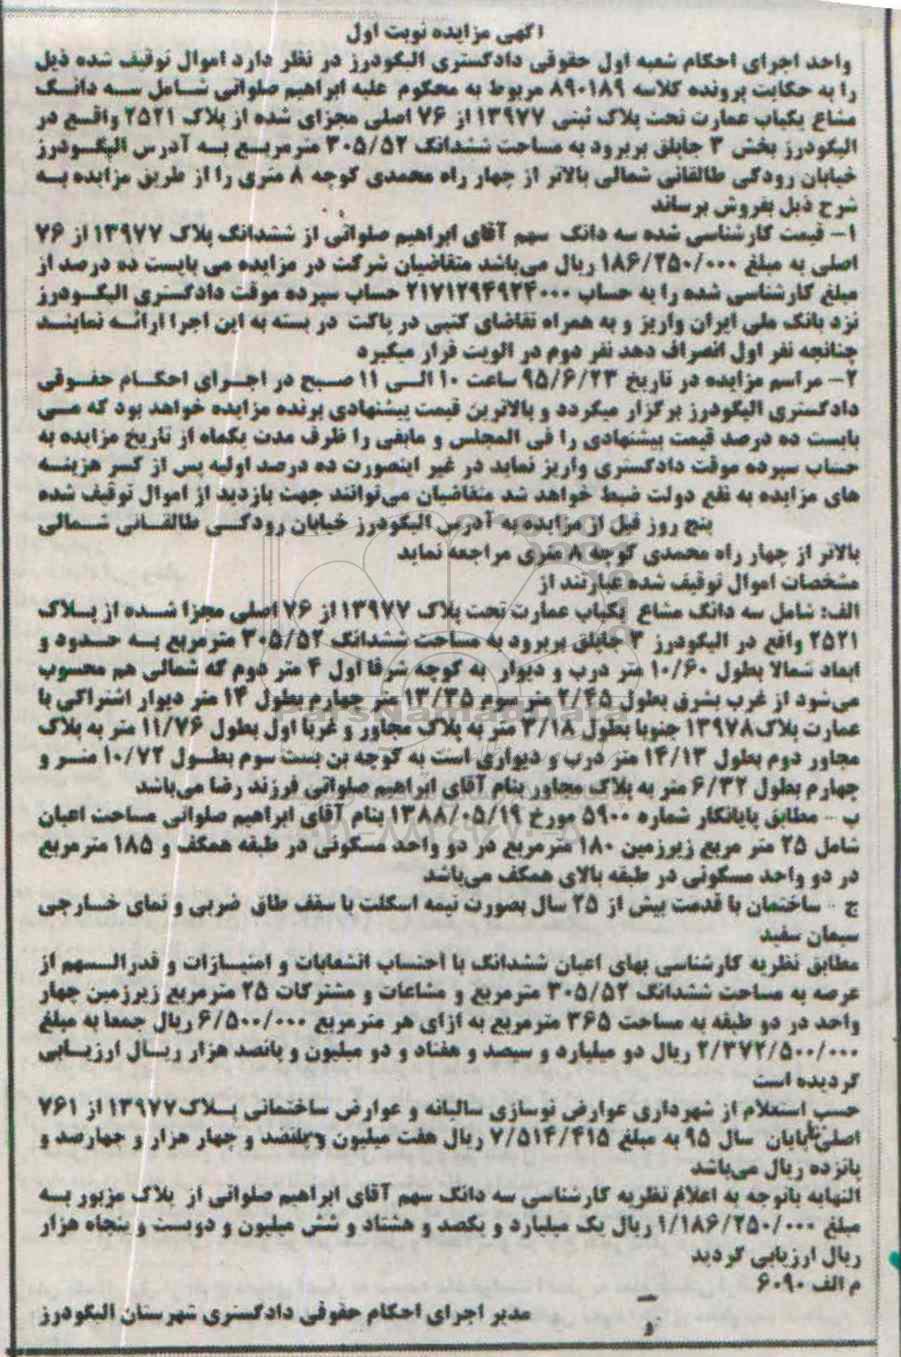 آگهی مزایده نوبت اول
واحد اجرای احکام شعبه اول حقوقی دادگستری الیگودرز در نظر دارد اموال توقیف شده ذیل
را به حکایت پرونده کلاسه ۸۹۰۱۸۹ مربوط به محکوم علیه ابراهیم صلواتی شامل سه دانگ
مشاع یکباب عمارت تحت پلاک ثبتی ۱۳۹۷۷ از ۷۶ اصلی مجزای شده از پلاک ۲۵۲۱ واقع در
الیگودرز بخش ۳ جاپلق بربرود به مساحت ششدانگ ۳۰۵/۵۲ مترمربع به آدرس الیگودرز
خیابان رودکی طالقانی شمالی بالاتر از چهار راه محمدی کوچه ۸ متری را از طریق مزایده به
شرح ذیل بفروش برساند
۱- قیمت کارشناسی شده سه دانگ سهم آقای ابراهیم صلواتی از ششدانگ پلاک ۱۳۹۷۷ از ۷۶
اصلی به مبلغ ۱۸۶/۲۵۰/۰۰۰ ریال می‌باشد متقاضیان شرکت در مزایده می بایست ده درصد از
مبلغ کارشناسی شده را به حساب ۲۱۷۱۲۹۴۹۲۴۰۰۰ حساب سپرده موقت دادگستری الیگودرز
نزد بانک ملی ایران واریز و به همراه تقاضای کتبی در پاکت در بسته به این اجرا ارائه نمایند
چنانچه نفر اول انصراف دهد نفر دوم در الویت قرار میگیرد
۲- مراسم مزایده در تاریخ ۹۵/۶/۲۳ ساعت ۱۰ الی ۱۱ صبح در اجرای احکام حقوقی
دادگستری الیگودرز برگزار میگردد و بالاترین قیمت پیشنهادی برنده مزایده خواهد بود که می
بایست ده درصد قیمت پیشنهادی را فی المجلس و مابقی را ظرف مدت یکماه از تاریخ مزایده به
حساب سپرده موقت دادگستری واریز نماید در غیر اینصورت ده درصد اولیه پس از کسر هزینه
های مزایده به نفع دولت ضبط خواهد شد متقاضیان می‌توانند جهت بازدید از اموال توقیف شده
پنج روز قبل از مزایده به آدرس الیگودرز خیابان رودکی طالقانی شمالی
بالاتر از چهار راه محمدی کوچه ۸ متری مراجعه نماید
مشخصات اموال توقیف شده عبارتند از
الف: شامل سه دانگ مشاع یکباب عمارت تحت پلاک ۱۳۹۷۷ از ۷۶ اصلی مجزا شده از پلاک
۲۵۲۱ واقع در الیگودرز ۳ جاپلق بربرود به مساحت ششدانگ ۳۰۵/۵۲ مترمربع به حدود و
ابعاد شمالا بطول ۱۰/۶۰ متر درب و دیوار به کوچه شرقا اول ۴ متر دوم که شمالی هم محسوب
می‌شود از غرب بشرق بطول ۲/۴۵ متر سوم ۱۳/۳۵ متر چهارم بطول ۱۴ متر دیوار اشتراکی با
عمارت پلاک ۱۳۹۷۸ جنوبا بطول ۳/۱۸ متر به پلاک مجاور و غربا اول بطول ۱۱/۷۶ متر به پلاک
مجاور دوم بطول ۱۴/۱۳ متر درب و دیواری است به کوچه بن بست سوم بطول ۱۰/۷۲ متر و
چهارم بطول ۶/۳۲ متر به پلاک مجاور بنام آقای ابراهیم صلواتی فرزند رضا می‌باشد
ب - مطابق پایانکار شماره ۵۹۰۰ مورخ ۱۳۸۸/۰۵/۱۹ بنام آقای ابراهیم صلواتی مساحت اعیان
شامل ۲۵ متر مربع زیرزمین ۱۸۰ مترمربع در دو واحد مسکونی در طبقه همکف و ۱۸۵ مترمربع
در دو واحد مسکونی در طبقه بالای همکف می‌باشد
ج - ساختمان با قدمت بیش از ۲۵ سال بصورت نیمه اسکلت با سقف طاق ضربی و نمای خارجی
سیمان سفید
مطابق نظریه کارشناسی بهای اعیان ششدانگ با احتساب انشعابات و امتیازات و قدرالسهم از
عرصه به مساحت ششدانگ ۳۰۵/۵۲ مترمربع و مشاعات و مشترکات ۲۵ مترمربع زیرزمین چهار
واحد در دو طبقه به مساحت ۳۶۵ مترمربع به ازای هر مترمربع ۶/۵۰۰/۰۰۰ ریال جمعا به مبلغ
۲/۳۷۲/۵۰۰/۰۰۰ ریال دو میلیارد و سیصد و هفتاد و دو میلیون و پانصد هزار ریال ارزیابی
گردیده است
حسب استعلام از شهرداری عوارض نوسازی سالیانه و عوارض ساختمانی پلاک ۱۳۹۷۷ از ۷۶۱
اصلی تا پایان سال ۹۵ به مبلغ ۷/۵۱۴/۴۱۵ ریال هفت میلیون و پانصد و چهار هزار و چهارصد و
پانزده ریال می‌باشد
النهایه باتوجه به اعلام نظریه کارشناسی سه دانگ سهم آقای ابراهیم صلواتی از پلاک مزبور به
مبلغ ۱/۱۸۶/۲۵۰/۰۰۰ ریال یک میلیارد و یکصد و هشتاد و شش میلیون و دویست و پنجاه هزار
ریال ارزیابی گردید
م الف ۶۰۹۰
مدیر اجرای احکام حقوقی دادگستری شهرستان الیگودرز
و